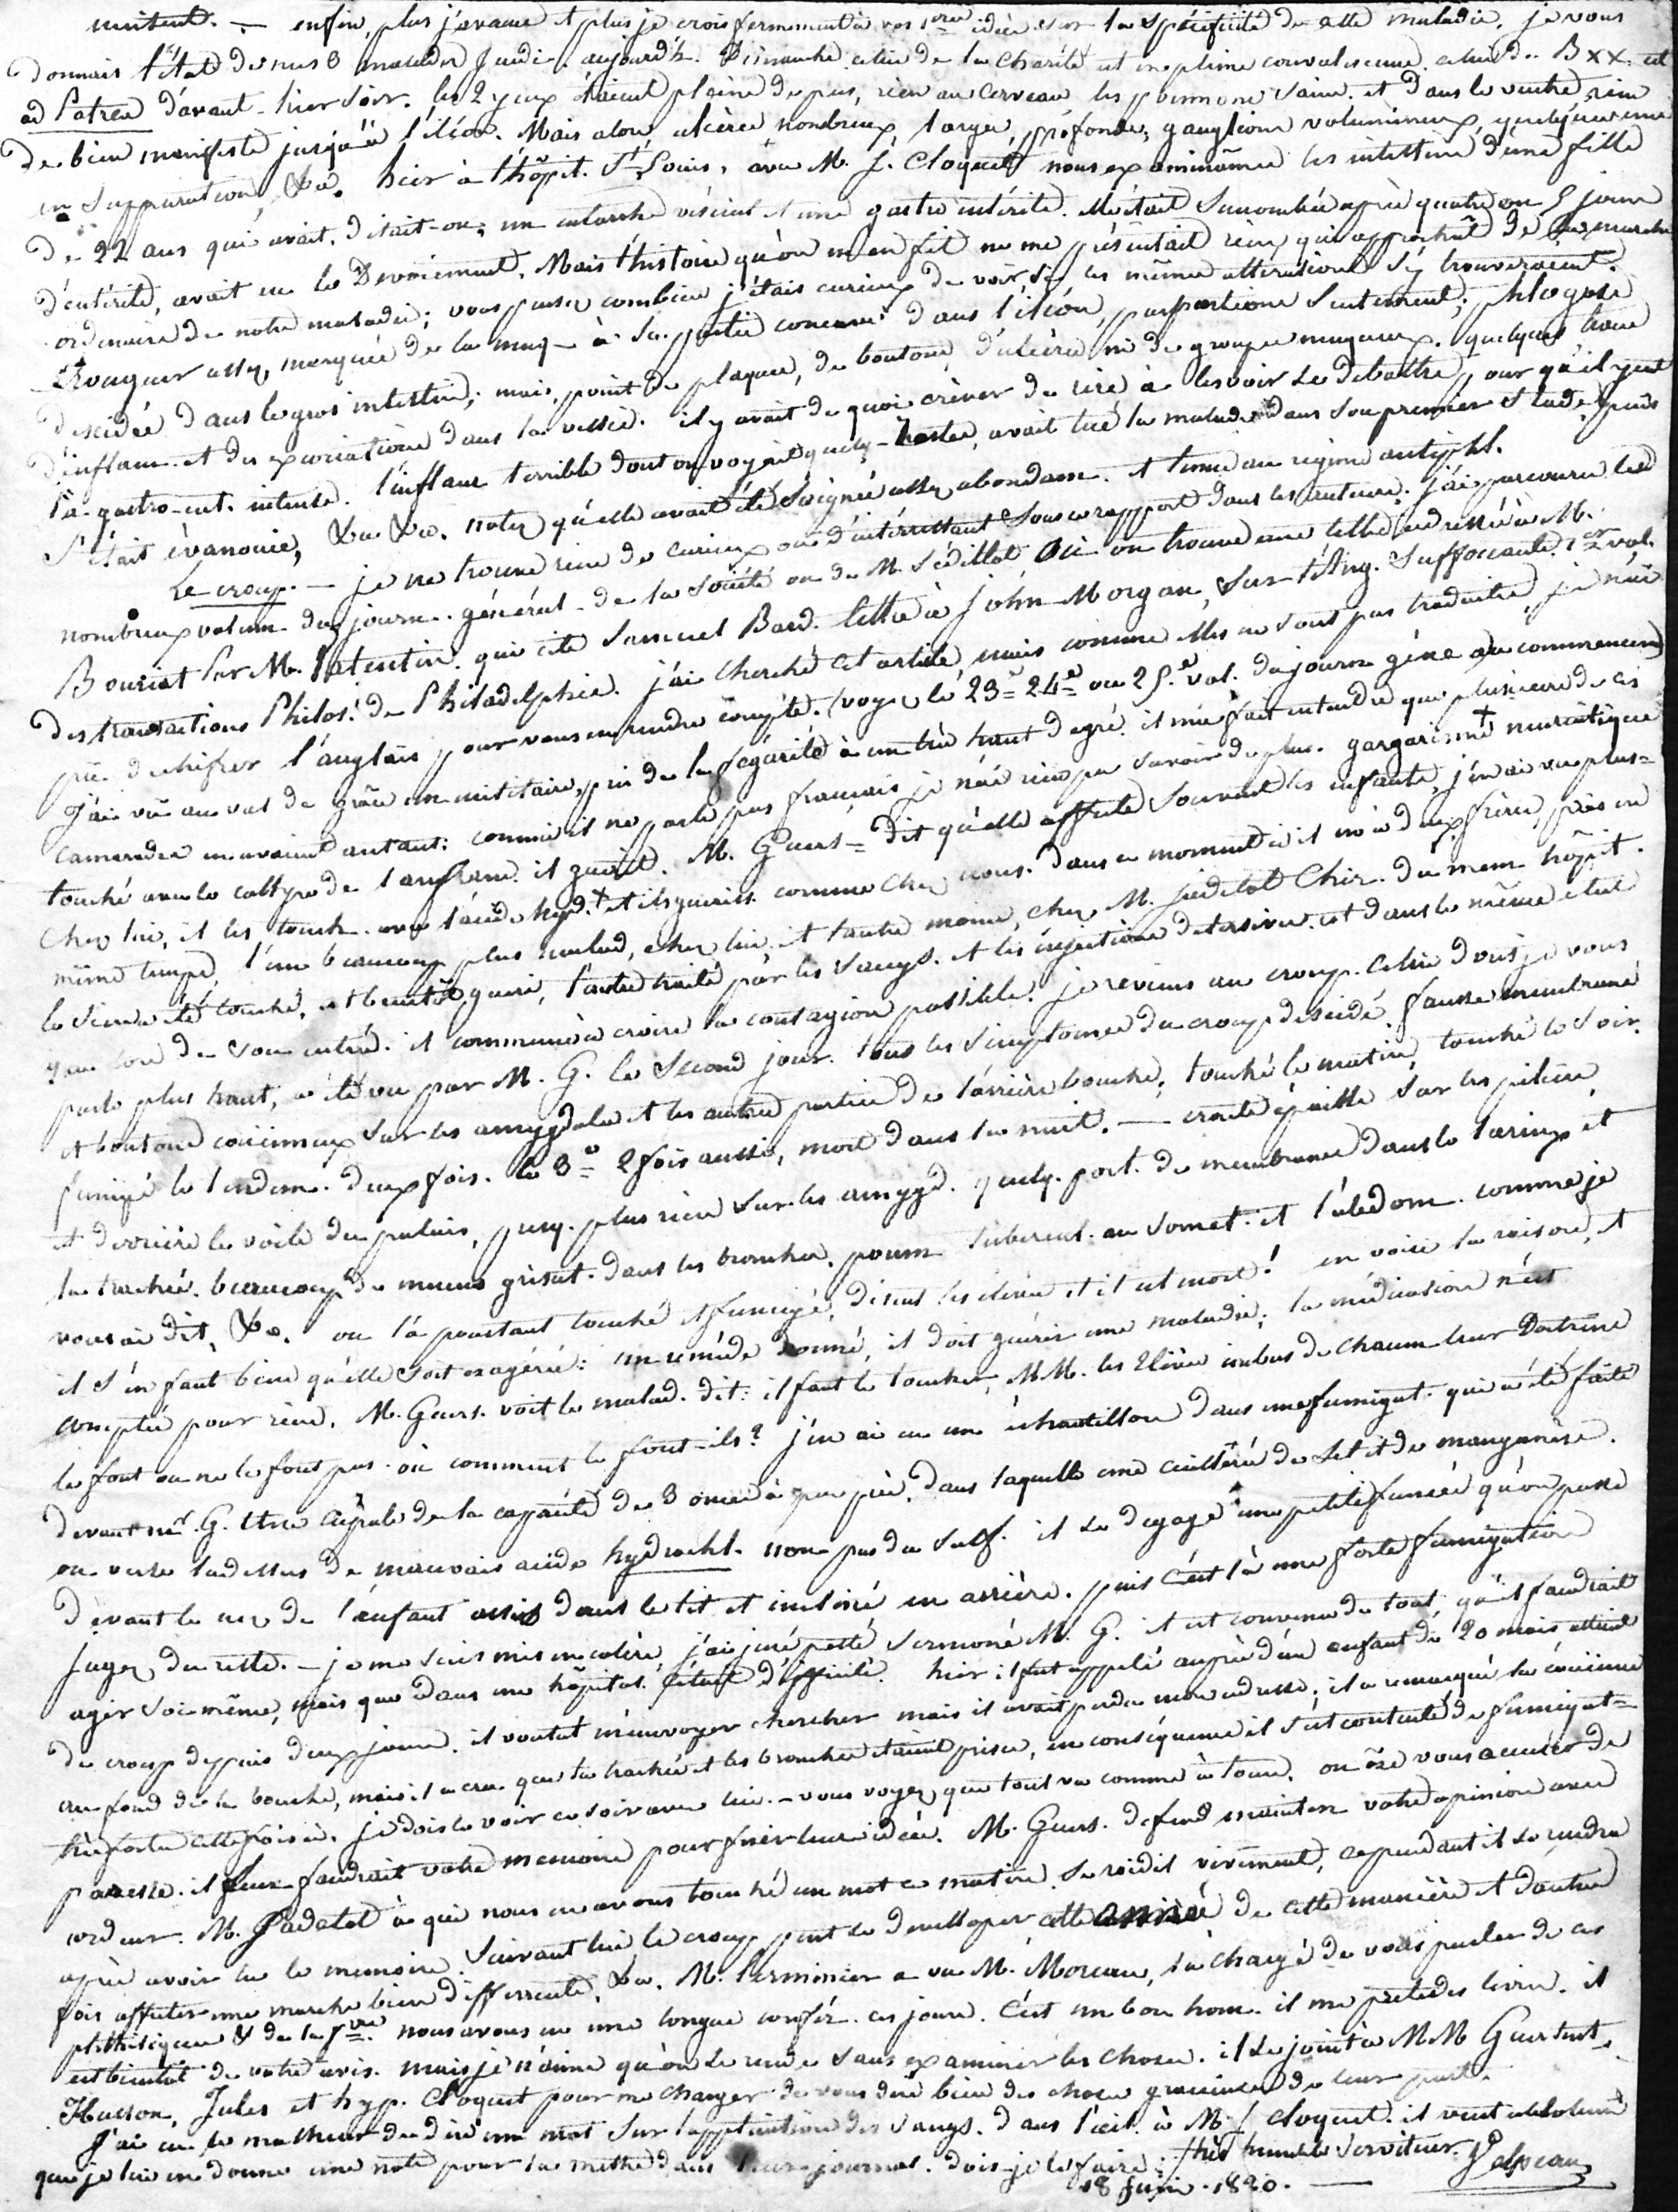 enfin, plus j'avance et plus je crois fermement à vos 1ères idées sur la spécificité de cette maladie. je vous
donnais l'état de nos 3 malades jeudi. aujourd'h. Dimanche celui de la Charité est en pleine convalescence. celui de BXX. est
ad Patres d'avant-hier soir. les 2 yeux étaient pleins de pus, rien au cerveau les poumons sains. et dans le ventre rien
de bien manifeste jusqu'à l'iléon. Mais alors ulcères nombreux, larges, profonds, ganglions volumineux, quelques uns
en suppuration, &a. hier à l'hôpit. St Louis, avec M. J. Cloquet nous examinâmes les intestins d'une fille
de 22 ans qui avait, disait-on, un catarrhe vésical et une gastro intérite. elle était succombée après quatre ou 5 jours
d'entérite, avait eu le Devoiement. Mais l'histoire qu'on m'en fit ne me présentait rien qui approchât de la marche
ordinaire de notre maladie; vous pensez combien j'étais curieux de voir si les mêmes altérations s'y trouveraient.
Rougeur assez marquée de la muq. à sa partie dans l'iléon, par portions seulement; phlogose
décidée dans le gros intestin; mais, point de plaques, de boutons, d'ulcères ni de groupes muqueux. quelques traces
d'inflam. et des excoriations dans la vessie. il y avait de quoi crever de rire à les voir se débattre pour qu'il y eut
là gastro-ent. intense. l'inflam terrible dont on voyait quelq. restes, avait tué la malade dans son premier stade, puis
s'était évanouie, &a &a. notez qu'elle avait été soignée assez abondam. et tenue au régime antiphl.
Le croup. — je ne trouve rien de curieux ou d'intéressant sous ce rapport dans les auteurs. j'ai parcouru les
nombreux volum. du journ. général de la société ou de M. Sédillot. où on trouve une lettre adressée à M.
Bouriat par M. Valentin. qui cite Samuel Bard. lettre à John Morgan, sur l'Ang. suffocante. 1er vol.
des transactions Philos. de Philadelphie. j'ai cherché cet article, mais comme elles ne sont pas traduites, je n'ai
pu dechifrer l'anglais pour vous en rendre compte. (voyez le 23e 24e ou 25e vol. du journ géné au commencem)
J'ai vu au val de grâce un militaire, pris de la fégarite à un très haut degré. il m'a fait entendre que plusieurs de ses
camarades en avaient autant: comme il ne parle pas français je n'ai rien pu savoir de plus. gargarisme muriatique
touché avec le collyre de Lanfranc. il guérit. M. Guers= dit qu'elle affecte souvent les enfants, j'en ai vu plus=
chez lui, il les touche avec l'acide hyd. et ils guériss. comme chez vous. dans ce moment il en a deux frères, pris en
même temps, l'un beaucoup plus malad. chez lui, et l'autre moins, chez M. jadelot Chir. du mem hôpit.
le sien a été touché, et bientôt guéri, l'autre traité par les sangs. et les injections détersives. est dans le même état
que lors de son entrée. il commence à croire la contagion possible. je reviens au croup. celui dont je vous
parle plus haut, a été vu par M. G. le second jour. tous les simptomes du croup décidé. fausse membrane
et boutons couënneux sur les amygdales et les autres parties de l'arrière bouche; touché le matin, touché le soir.
fumigé le lendem. deux fois. le 3e 2 fois aussi, mort dans la nuit. — croute épaisse sur les piliers
et derrière le voile du palais, presq. plus rien sur les amygd. quelq. port. de membranes dans le larinx et
la trachée. beaucoup de mucus grisat. dans les bronches. poum. tubercul. au somet. et l'abdom. comme je
vous ai dit, &a. on l'a pourtant touché et fumigé, disent les élèves et il est mort! en voici la raison, et
il s'en faut bien qu'elle soit exagérée: un remède donné, il doit guérir une maladie; la médication n'est
comptée pour rien. M. Guers. voit le malad. dit: il faut le toucher, MM. les Elèves imbus de chacun leur Doctrine
le font ou ne le font pas. où comment le font-ils? j'en ai eu un échantillon dans une fumigat. qui a été faite
devant mr. G. Une capsule de la capacité de 3 onces à peu près, dans laquelle une cuillerée de sel et de manganèse.
on verse ladessus de mauvais acide hydrochl. non pas du sulf. il se dégage une petite fumée qu'on passe
devant le nez de l'enfant assis dans le lit et incliné en arrière. puis c'est là une forte fumigation
jugez du reste. — je me suis mis en colère, j'ai juré, pesté, sermoné M. G. et est convenu de tout, qu'il faudrait
agir soi-même, mais que dans un hôpital c'était difficile. hier il fut appelé auprès d'un enfant de 20 mois atteint
du croup depuis deux jours. il voulut m'envoyer chercher mais il avait perdu mon adresse; il a remarqué la couënne
au fond de la bouche, mais il a cru que la trachée et les bronches étaient prises, en conséquence il s'est contenté de fumigat=
très fortes cette fois-ci. je dois le voir ce soir avec lui. — vous voyez que tout va comme à tours. on ôse vous accuser de
paresse. il leur faudrait votre mémoire pour fixer leurs idées. M. Guers. defend mainten. votre opinion avec
cordeur. M. Jadelot à qui nous en avons touché un mot ce matin se roidit vivement, cependant il se rendra
après avoir lu le mémoire. Suivant lui le croup peut se develloper cette année de cette manière et d'autres
fois affecter une marche bien différente, &a. M. Lerminier a vu M. Moreau, l'a chargé de vous parler de ces
phthisiques & de la fvre. nous avons eu une longue confér. ces jours. C'est un bon hom. il me prete des livres. il
est bientôt de votre avis. mais je n'aime qu'on se rende sans examiner les choses. il se joint à MM Guersent,
Husson, Jules et hyp. Cloquet pour me charger de vous dire bien des choses gracieuses de leur part.
J'ai eu le malheur de dire un mot sur l'application des sangs. dans l'œil. à M. J Cloquet. il veut absolument
que je lui en donne une note pour la mettre dans leur journal. dois-je le faire: très humble serviteur. Velpeau
18 Juin. 1820. —